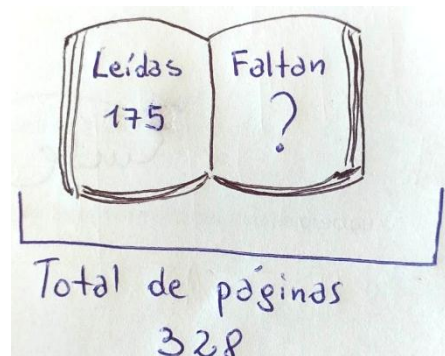 Leídas
175
Faltan
?
Total de páginas
328